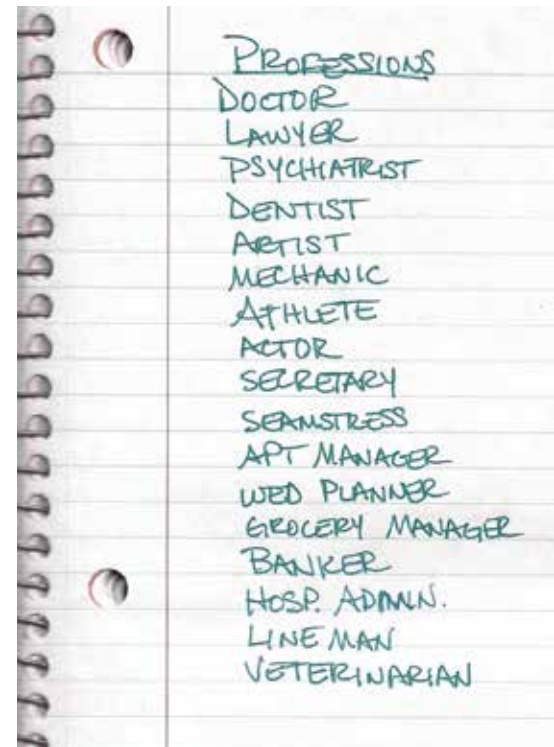 PROFESSIONS
DOCTOR
LAWYER
PSYCHIATRIST
DENTIST
ARTIST
MECHANIC
ATHLETE
ACTOR
SECRETARY
SEAMSTRESS
APT MANAGER
WED PLANNER
GROCERY MANAGER
BANKER
HOSP. ADMIN.
LINE MAN
VETERINARIAN